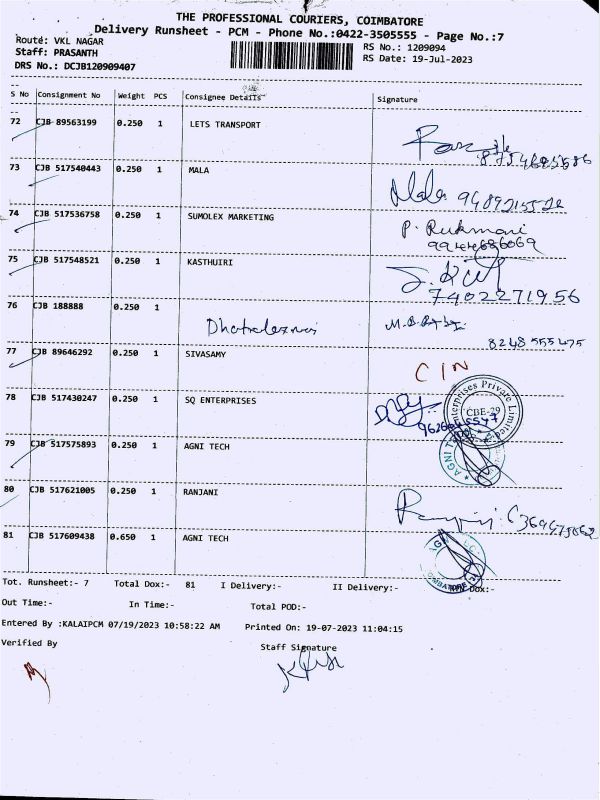 THE PROFESSIONAL COURIERS, COIMBATORE
Delivery Runsheet - PCM - Phone No.:0422-3505555 - Page No.:7
Route: VKL NAGAR
RS No.: 1209094
Staff: PRASANTH
RS Date: 19-Jul-2023
DRS No.: DCJB120909407
S No Consignment No Weight PCS Consignee Details Signature
72 CJB 89563199 0.250 1 LETS TRANSPORT
73 CJB 517540443 0.250 1 MALA
Mala 9489215520
74 CJB 517536758 0.250 1 SUMOLEX MARKETING
P. Rukmani
9944686069
75 CJB 517548521 0.250 1 KASTHUIRI
7402271956
76 CJB 188888 0.250 1
8248555475
77 CJB 89646292 0.250 1 SIVASAMY
CIN
78 CJB 517430247 0.250 1 SQ ENTERPRISES
Enterprises Private Limited
CBE-29
79 CJB 517575893 0.250 1 AGNI TECH
AGNI
80 CJB 517621005 0.250 1 RANJANI
81 CJB 517609438 0.650 1 AGNI TECH
Tot. Runsheet:- 7 Total Dox:- 81 I Delivery:- II Delivery:- Dox:-
Out Time:- In Time:- Total POD:-
Entered By :KALAIPCM 07/19/2023 10:58:22 AM Printed On: 19-07-2023 11:04:15
Verified By Staff Signature